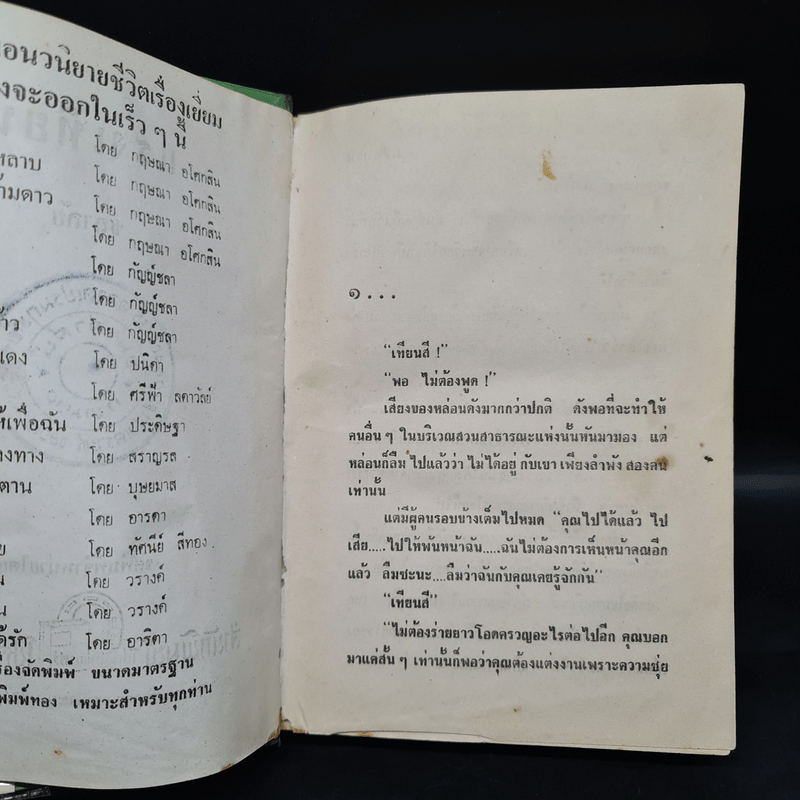 อนวนิยายชีวิตเรื่องเยี่ยม
งจะออกในเร็ว ๆ นี้
หลาบ โดย กฤษณา อโศกสิน
ามดาว โดย กฤษณา อโศกสิน
โดย กฤษณา อโศกสิน
โดย กฤษณา อโศกสิน
โดย กัญญ์ชลา
โดย กัญญ์ชลา
าว โดย กัญญ์ชลา
แดง โดย ปนิดา
โดย ศรีฟ้า ลดาวัลย์
ห้เพื่อฉัน โดย ประดิษฐา
างทาง โดย สราญรส
ตาน โดย บุษยมาส
โดย อารดา
ย โดย ทัศนีย์ สีทอง
น โดย วรางค์
น โดย วรางค์
ด้รัก โดย อาริตา
รื่องจัดพิมพ์ ขนาดมาตรฐาน
พิมพ์ทอง เหมาะสำหรับทุกท่าน
๑...
“เทียนสี !”
“พอ ไม่ต้องพูด !”
เสียงของหล่อนดังมากกว่าปกติ ดังพอที่จะทำให้
คนอื่น ๆ ในบริเวณสวนสาธารณะแห่งนั้นหันมามอง แต่
หล่อนก็ลืมไปแล้วว่า ไม่ได้อยู่ กับเขา เพียงลำพัง สองคน
เท่านั้น
แต่มีผู้คนรอบข้างเต็มไปหมด “คุณไปได้แล้ว ไป
เสีย.....ไปให้พ้นหน้าฉัน.....ฉันไม่ต้องการเห็นหน้าคุณอีก
แล้ว ลืมซะนะ....ลืมว่าฉันกับคุณเคยรู้จักกัน”
“เทียนสี”
“ไม่ต้องร่ายยาวโอดครวญอะไรต่อไปอีก คุณบอก
มาแค่สั้น ๆ เท่านั้นก็พอว่าคุณต้องแต่งงานเพราะความซุ่ย